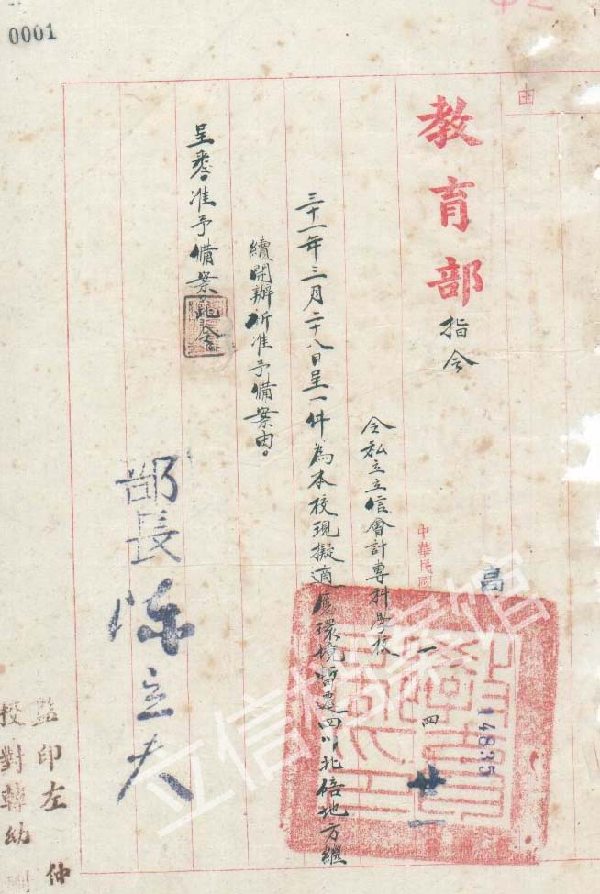 0001
由
教育部
指令
高
14835
中華民國
四 廿一
令私立立信會計專科學校
三十一年三月二十八日呈一件為本校現擬適應環境暫遷四川北碚地方繼
續開辦祈准予備案由。
呈悉。准予備案。此令
部長 陳立夫
監印左 仲
校對韓幼
立信档案馆